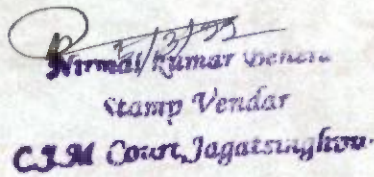 Nirmal Kumar Behera
Stamp Vendar
C.J.M Court, Jagatsinghpur